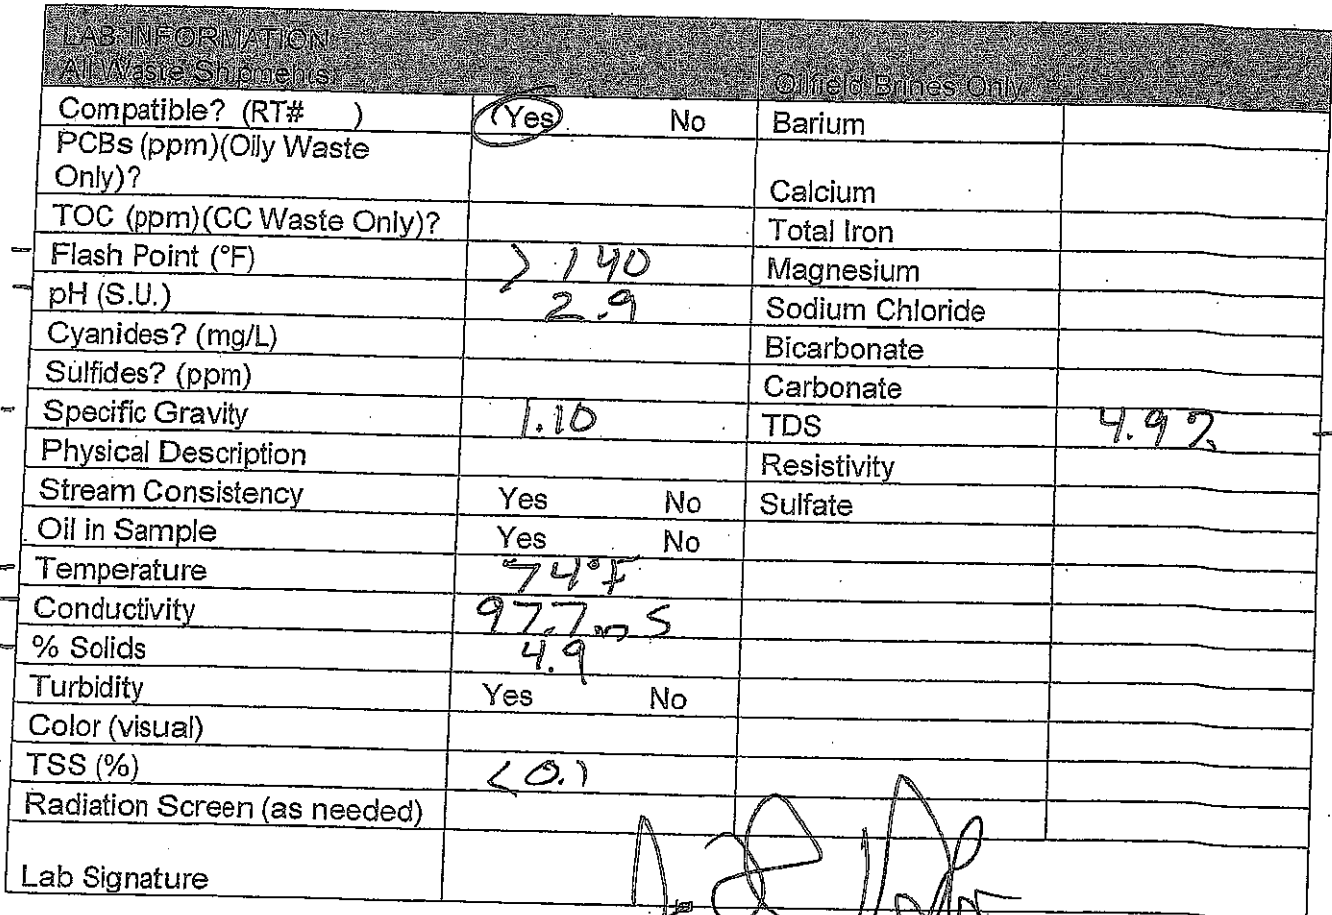 LAB INFORMATION
All Waste Shipments Oilfield Brines Only
Compatible? (RT# ) Yes No Barium
PCBs (ppm)(Oily Waste
Only)? Calcium
TOC (ppm)(CC Waste Only)? Total Iron
Flash Point (°F) > 140 Magnesium
pH (S.U.) 2.9 Sodium Chloride
Cyanides? (mg/L) Bicarbonate
Sulfides? (ppm) Carbonate
Specific Gravity 1.10 TDS 4.9%
Physical Description Resistivity
Stream Consistency Yes No Sulfate
Oil in Sample Yes No
Temperature 74°F
Conductivity 97.7 mS
% Solids 4.9
Turbidity Yes No
Color (visual)
TSS (%) <0.1
Radiation Screen (as needed)
Lab Signature